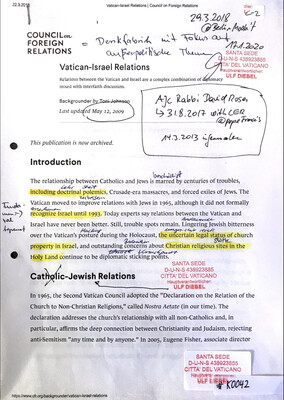 22.3.2018
Vatican-Israel Relations | Council on Foreign Relations
24.3.2018
COUNCIL on
FOREIGN
RELATIONS
= Denkfabrik mit Fokus auf
außenpolitische Themen
17.1.2020
SANTA SEDE
D-U-N-S 438923885
CITTA' DEL VATICANO
Hauptverantwortlicher:
ULF DIEBEL
Vatican-Israel Relations
Relations between the Vatican and Israel are a complex combination of diplomacy
mixed with interfaith discussion.
Backgrounder by Toni Johnson
Last updated May 12, 2009
AJC Rabbi David Rosen
→ 31.8.2017 with
14.3.2013
This publication is now archived.
Introduction
The relationship between Catholics and Jews is marred by centuries of troubles,
including doctrinal polemics, Crusade-era massacres, and forced exiles of Jews. The
Vatican moved to improve relations with Jews in 1965, although it did not formally
recognize Israel until 1993. Today experts say relations between the Vatican and
Israel have never been better. Still, trouble spots remain. Lingering Jewish bitterness
over the Vatican's posture during the Holocaust, the uncertain legal status of church
property in Israel, and outstanding concerns about Christian religious sites in the
Holy Land continue to be diplomatic sticking points.
SANTA SEDE
D-U-N-S 438923885
CITTA' DEL VATICANO
Hauptverantwortlicher:
ULF DIEBEL
Catholic-Jewish Relations
In 1965, the Second Vatican Council adopted the "Declaration on the Relation of the
Church to Non-Christian Religions," called Nostra Aetate (in our time). The
declaration addresses the church's relationship with all non-Catholics and, in
particular, affirms the deep connection between Christianity and Judaism, rejecting
anti-Semitism "any time and by anyone." In 2005, Eugene Fisher, associate director
SANTA SEDE
D-U-N-S 438923885
CITTA' DEL VATICANO
Hauptverantwortlicher:
ULF DIEBEL
K0042
https://www.cfr.org/backgrounder/vatican-israel-relations